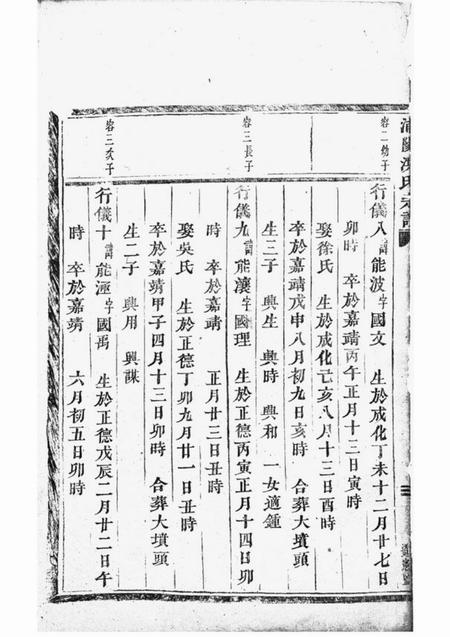 容二幼子
行儀八諱能波字國文 生於成化丁未十二月廿七日
卯時 卒於嘉靖丙午正月十三日寅時
娶徐氏 生於成化己亥八月十三日酉時
卒於嘉靖戊申八月初九日亥時 合葬大墳頭
生三子 興生 興時 興和 一女適鍾
容三長子
行儀九諱能瀼字國理 生於正德丙寅正月十四日卯
時 卒於嘉靖 正月廿三日丑時
娶吳氏 生於正德丁卯九月廿一日丑時
卒於嘉靖甲子四月十三日卯時 合葬大墳頭
生二子 興用 興謀
容三次子
行儀十諱能 字國禹 生於正德戊辰二月廿二日午
時 卒於嘉靖 六月初五日卯時